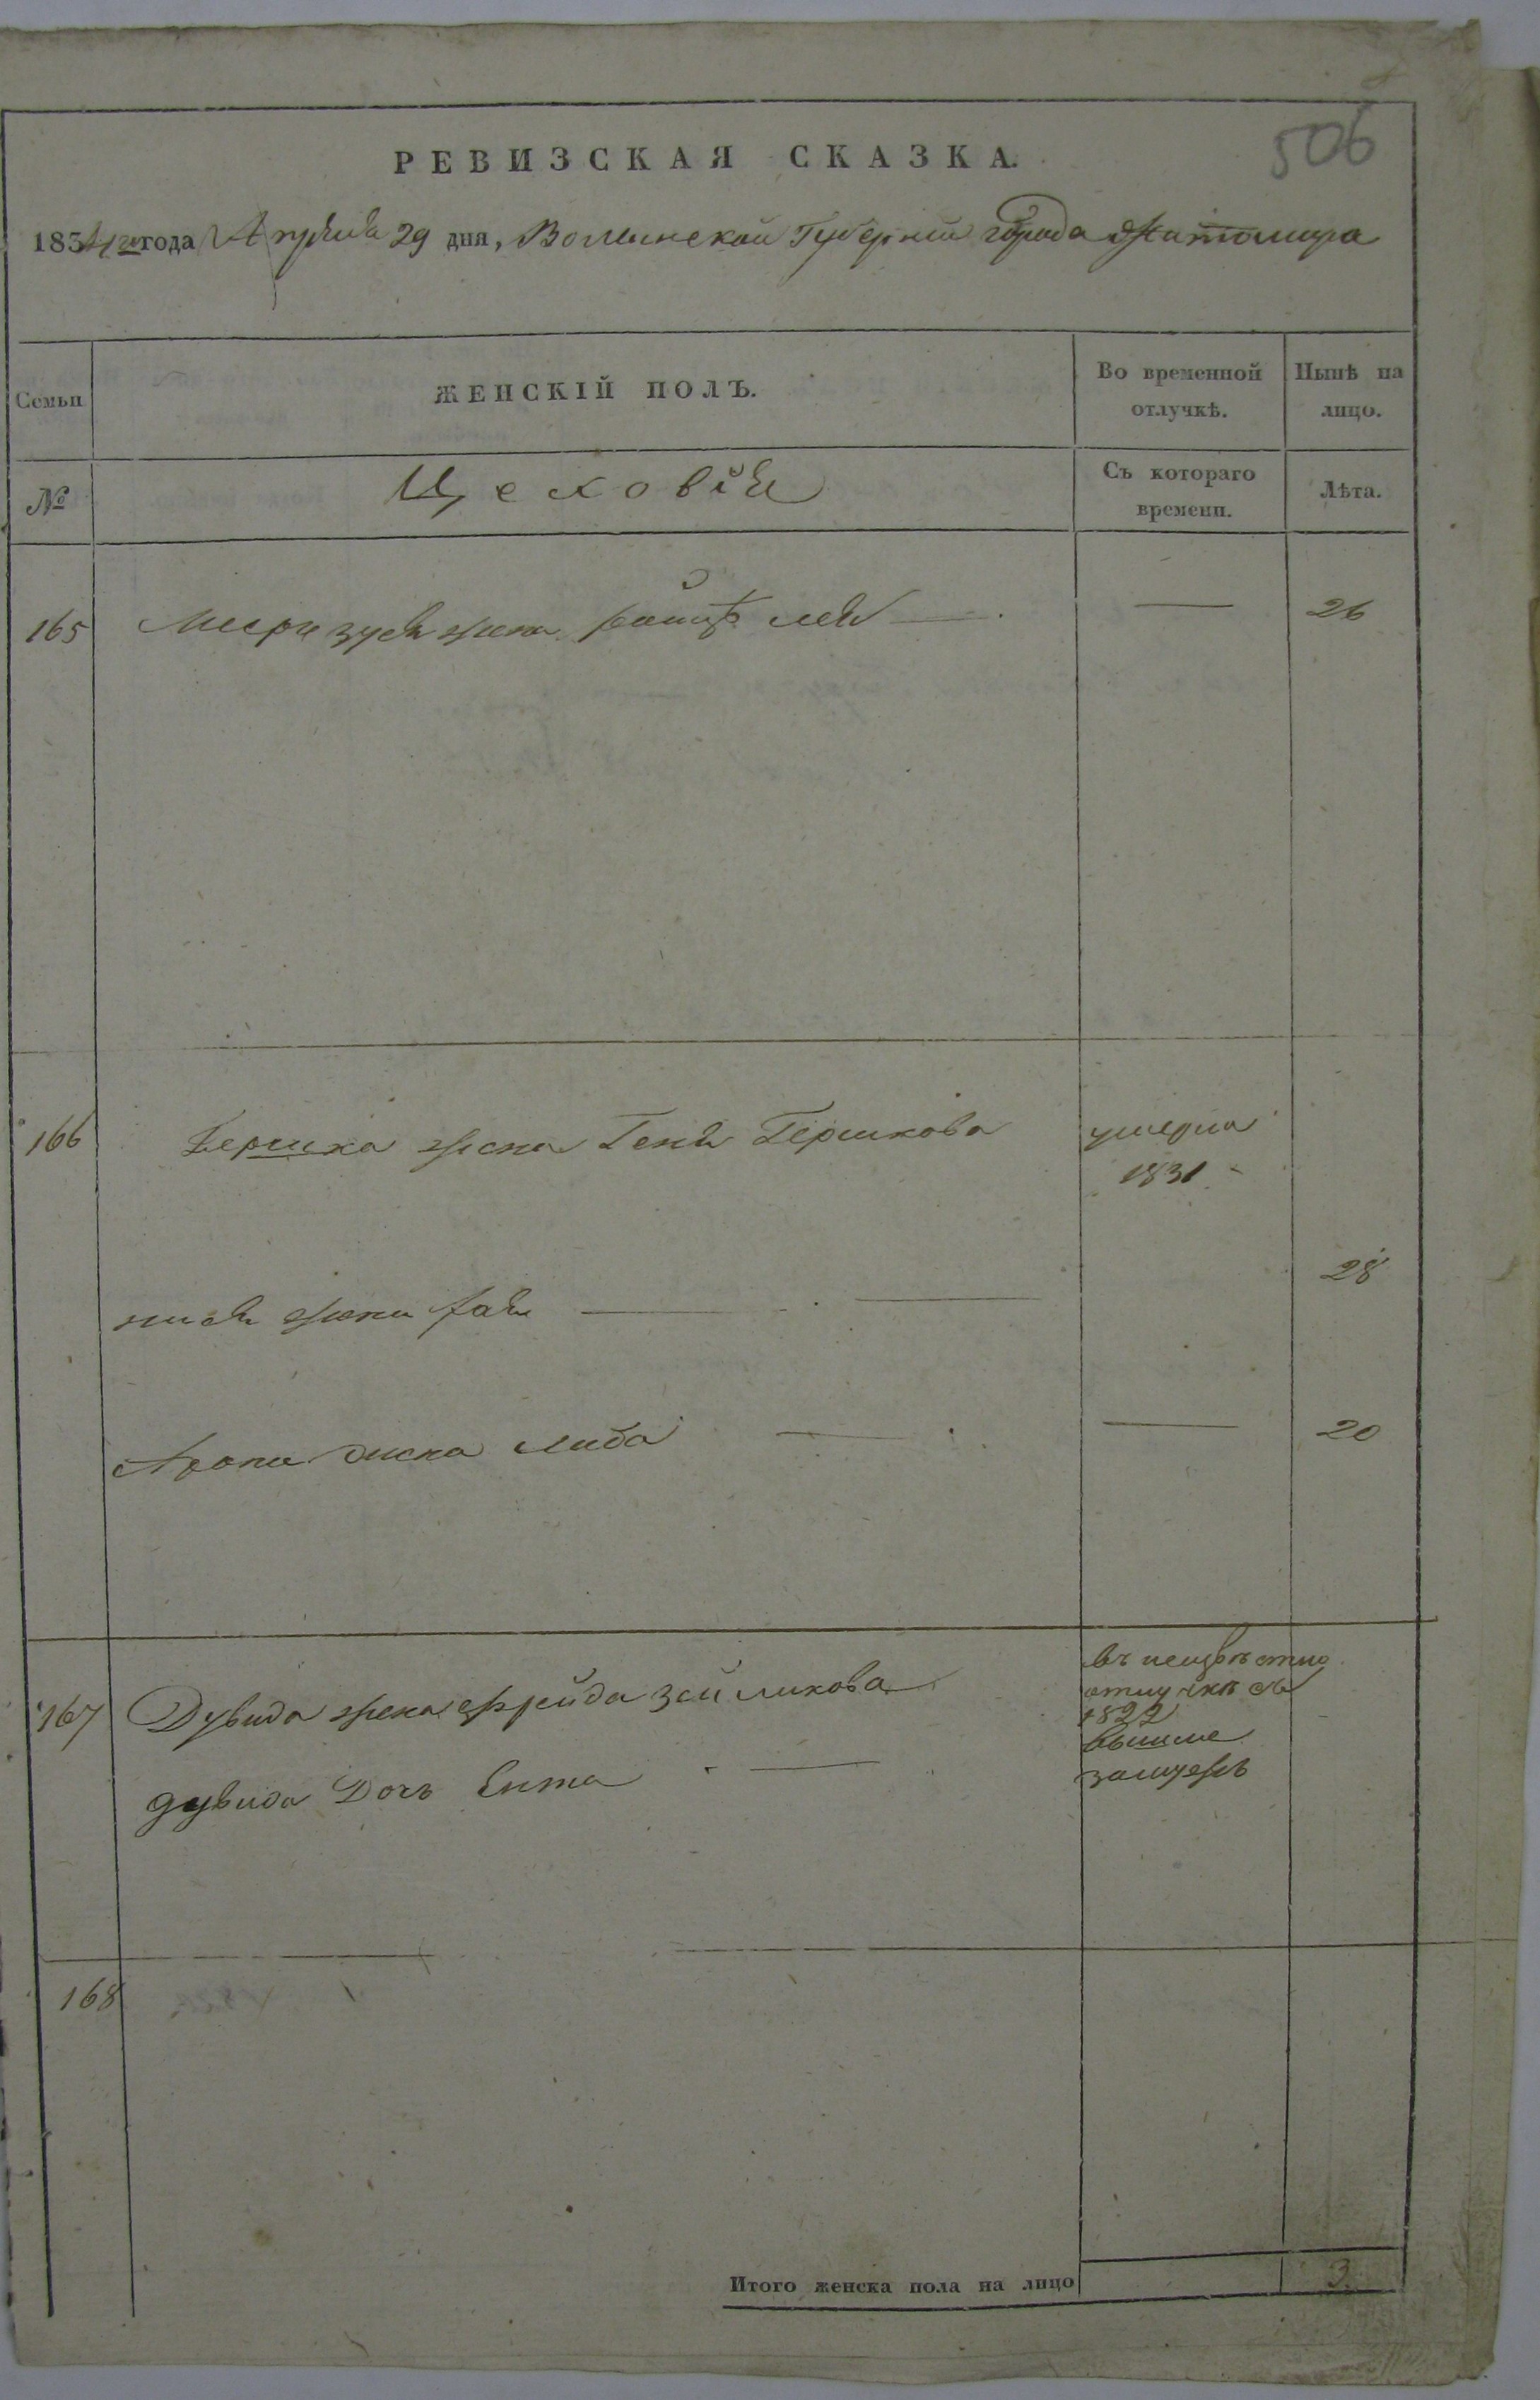 506
РЕВИЗСКАЯ СКАЗКА.
1834 года Апреля 29 дня, Волынской Губерніи города Житомира
Семьи ЖЕНСКІЙ ПОЛЪ. Во временной отлучкѣ. Нынѣ на лицо.
№ Цеховіи Съ котораго времени. Лѣта.
165 жена лея — — 26
166 Бершка жена Геня Гершкова умерла
1831
28
жена — —
жена либа — — 20
167 Дувида жена Фрейда Зейликова въ неизвѣстно
отлучкѣ съ
1822
дувида Дочь Ента — вышле
замужъ
168
Итого женска пола на лицо 3